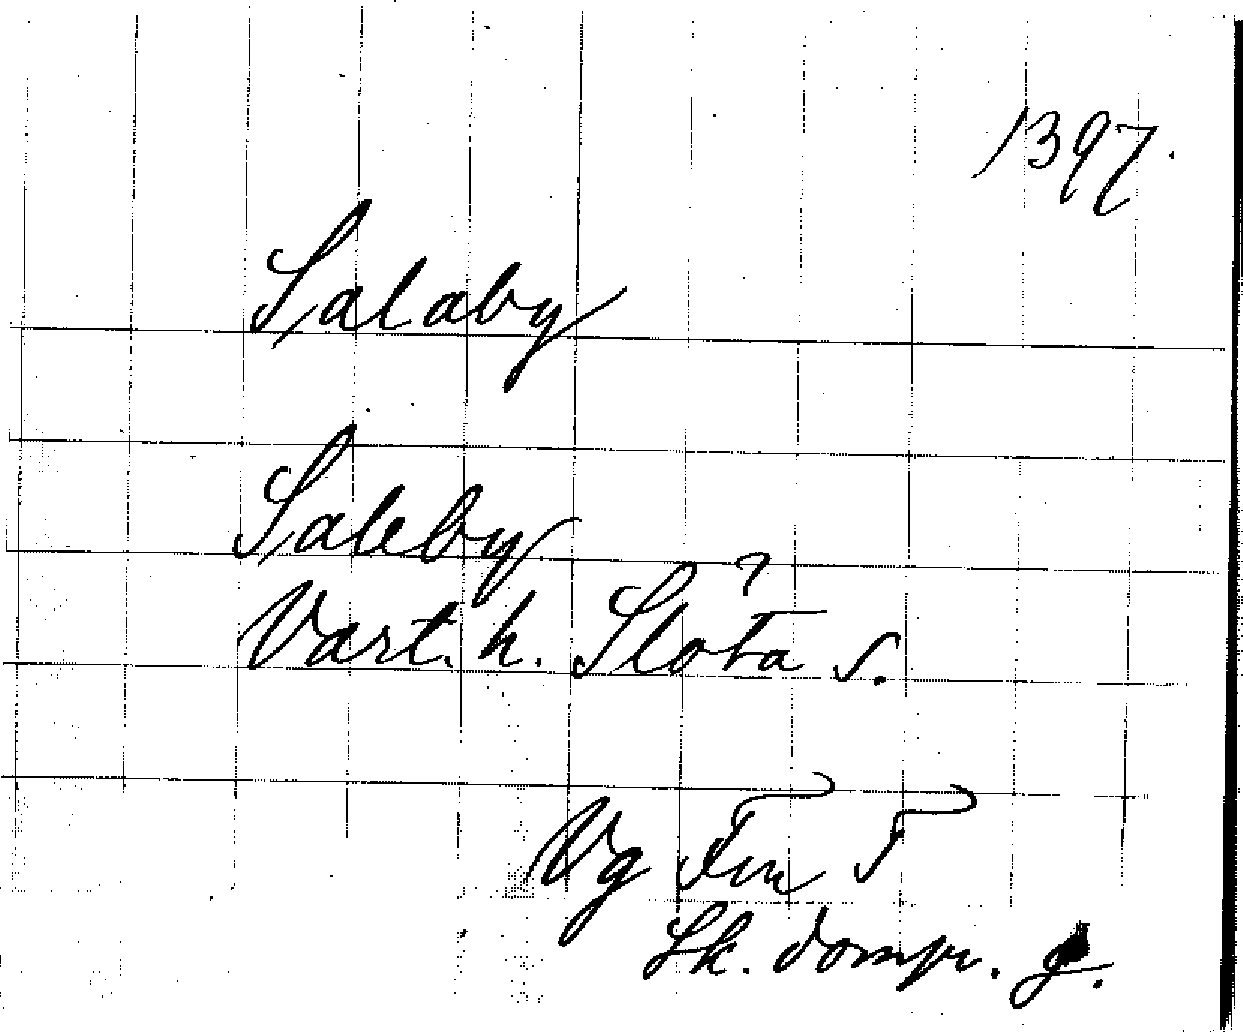 1397.
Salaby
Saleby
Vart. h. Slöta s.
Vg Fru F
Sk. dompr. g.